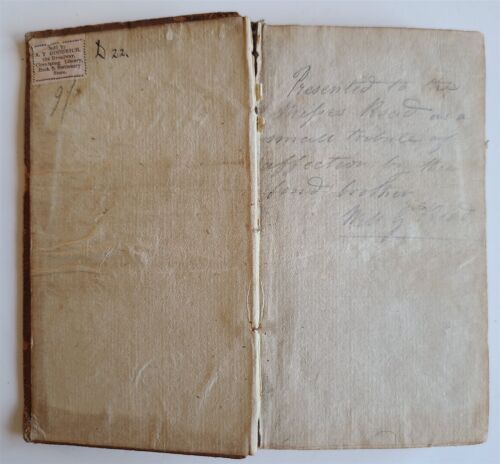 Sold by
A. T. GOODRICH,
the Broadway,
Circulating Library,
Book & Stationery
Store.
D 22.
Presented to the
Misses Read as a
small tribute of
affection by their
fond brother